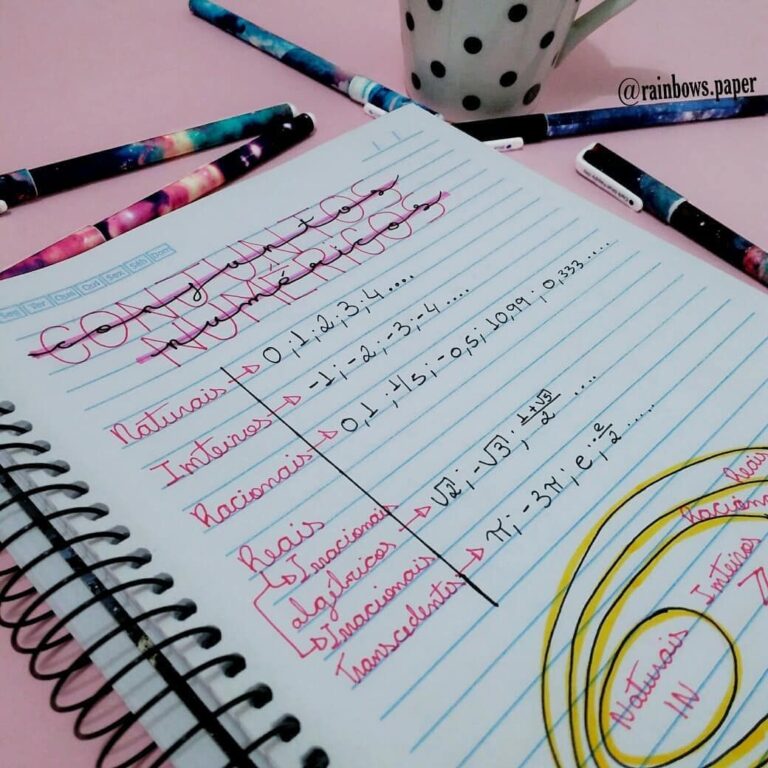 @rainbows.paper
Seg Ter Qua Qui Sex Sáb Dom
CONJUNTOS
conjuntos
NUMÉRICOS
numéricos
Naturais → 0; 1; 2; 3; 4 ....
Inteiros → -1; -2; -3; -4 ....
Racionais → 0,1; 1/5; -0,5; 10,99; 0,333 ....
Reais
Irracionais
algébricos → √2; -√3; (1+√3)/2 ....
Irracionais
Transcedentes → π; -3π; e; 
Reais
Racionais
Inteiros
Z
Naturais
IN